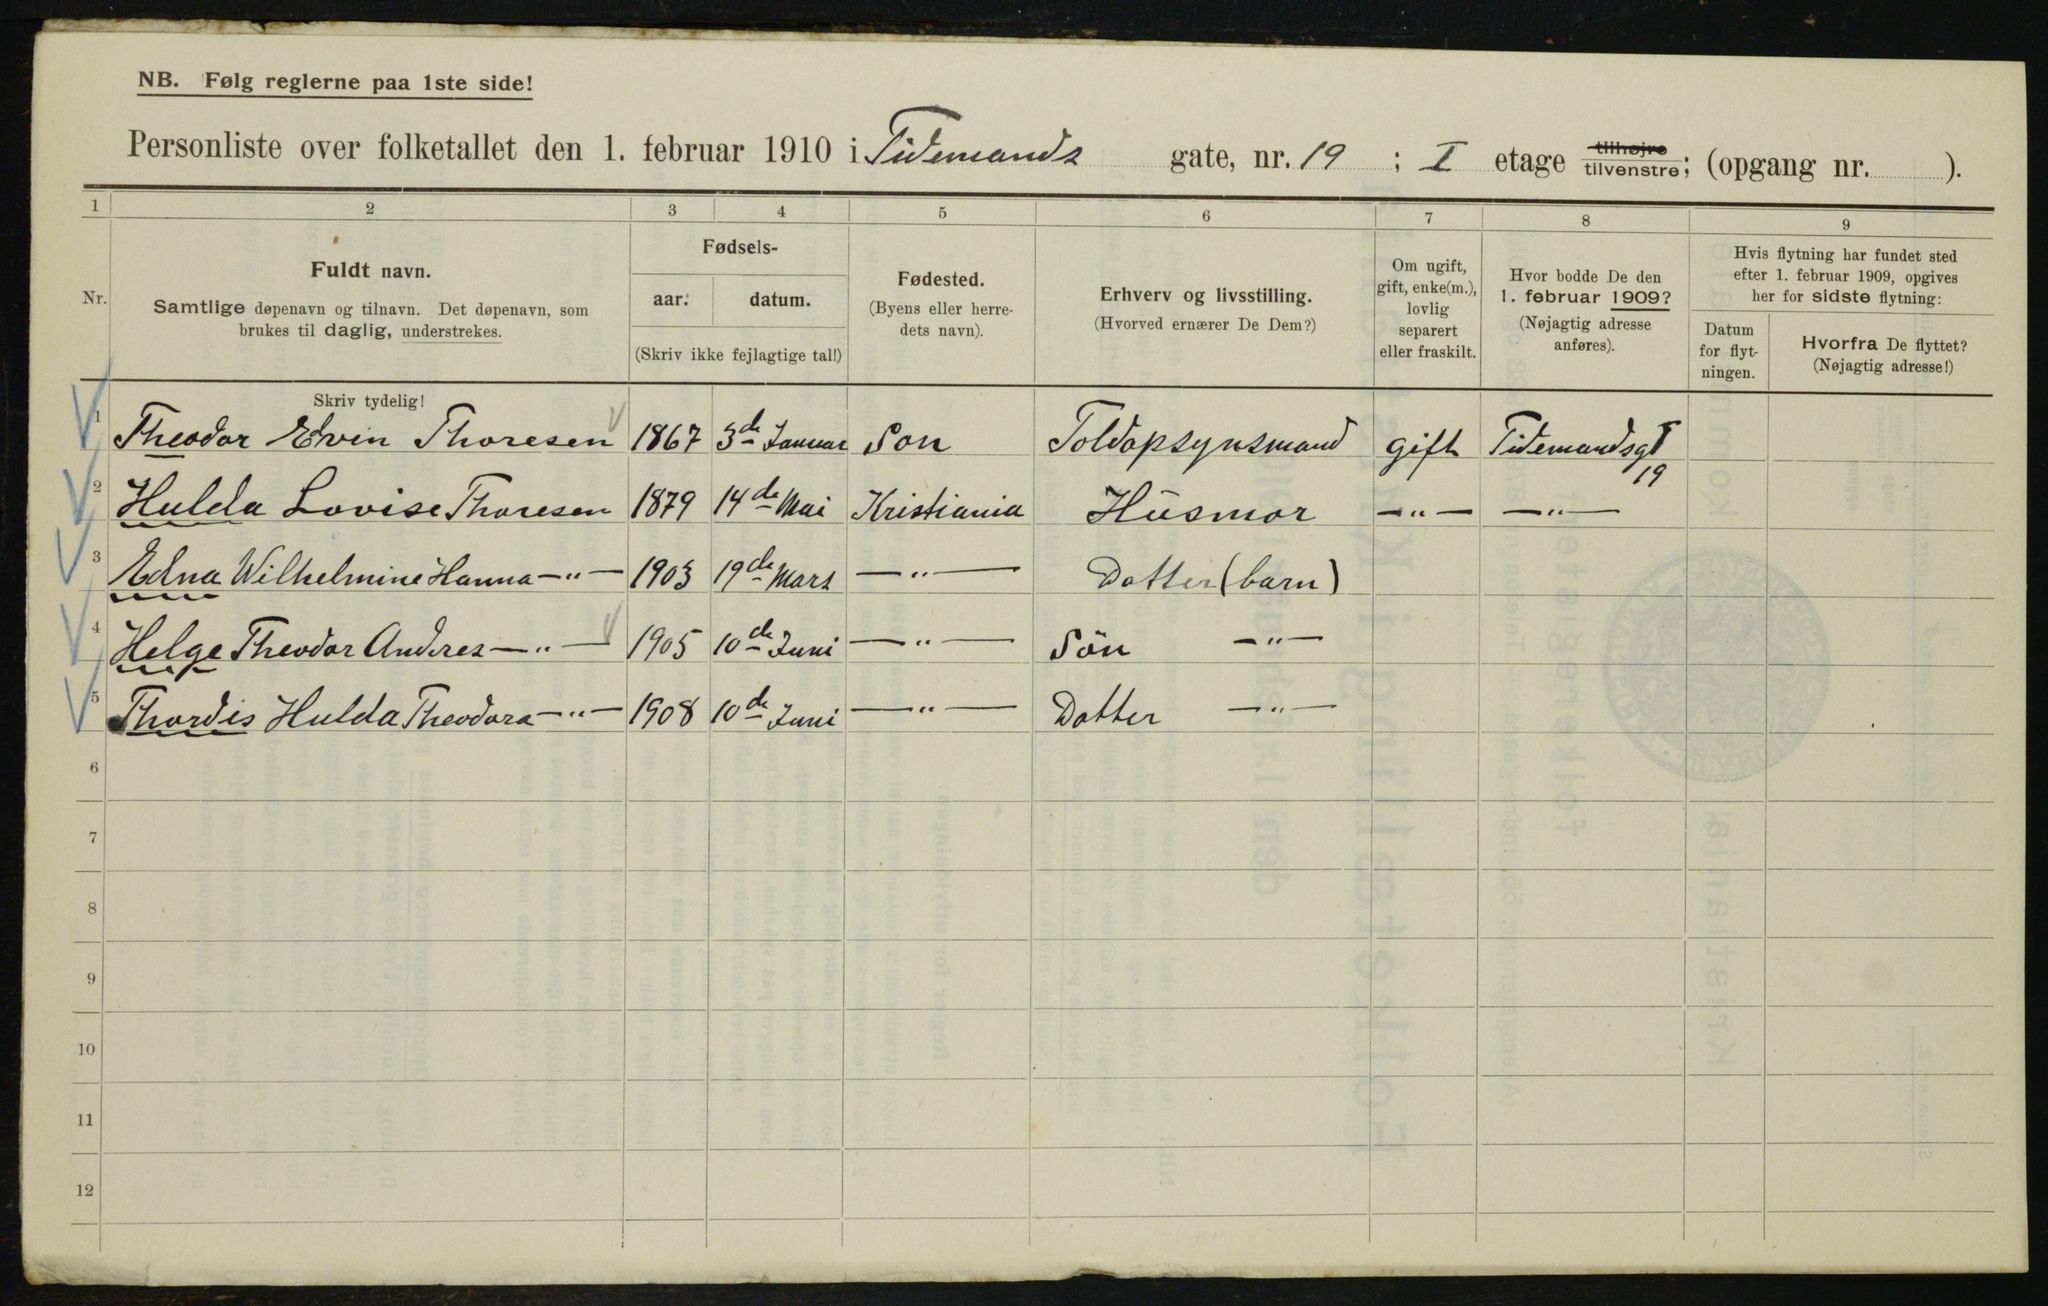 NB. Følg reglerne paa 1ste side!
Personliste over folketallet den 1. februar 1910 i Tidemands gate, nr. 19 ; I etage tilhøjre tilvenstre; (opgang nr. ).
1 2 3 4 5 6 7 8 9
Nr.
Fuldt navn.
Samtlige døpenavn og tilnavn. Det døpenavn, som
brukes til daglig, understrekes.
Fødsels-
aar. datum.
(Skriv ikke fejlagtige tal!)
Fødested.
(Byens eller herre-
dets navn).
Erhverv og livsstilling.
(Hvorved ernærer De Dem?)
Om ugift,
gift, enke(m.),
lovlig
separert
eller fraskilt.
Hvor bodde De den
1. februar 1909?
(Nøjagtig adresse
anføres).
Hvis flytning har fundet sted
efter 1. februar 1909, opgives
her for sidste flytning:
Datum
for flyt-
ningen.
Hvorfra De flyttet?
(Nøjagtig adresse!)
Skriv tydelig!
1 Theodor Edvin Thoresen 1867 3de Januar Son Toldopsynsmand gift Tidemandsgt
19
2 Hulda Lovise Thoresen 1879 14de Mai Kristiania Húsmor —"— —"—
3 Edna Wilhelmine Hanna —"— 1903 19de Mars —"— Datter (barn)
4 Helge Theodor Andres —"— 1905 10de Juni —"— Sön —"—
5 Thordis Hulda Theodora —"— 1908 10de Juni —"— Datter —"—
6
7
8
9
10
11
12